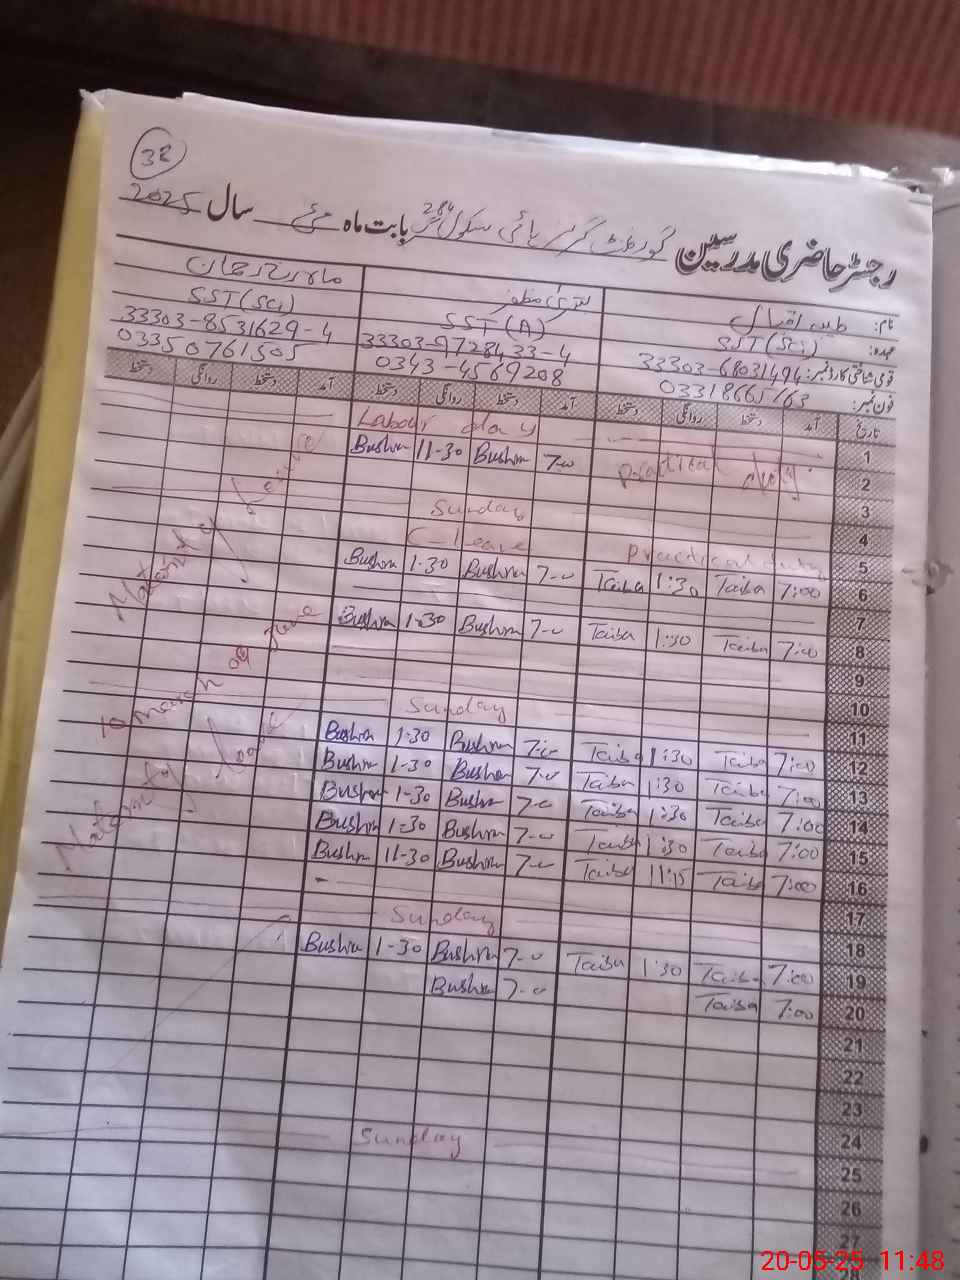 32
رجسٹر حاضری مدرسین گورنمنٹ گرلز ہائی سکول 284 بابت ماہ مئی سال 2025
نام: طیبہ اقبال بشریٰ مظفر
عہدہ: SST(Sci) SST(A) SST(Sci)
قومی شناختی کارڈ نمبر: 33303-68031494 33303-9728433-4 33303-8531629-4
فون نمبر: 03318665763 0343-4569208 03350761505
تاریخ آمد دستخط روانگی دستخط آمد دستخط روانگی دستخط آمد دستخط روانگی دستخط
Labour day 1
Bushra 11-30 Bushra 7-00 Practical duty 2
3
Sunday 4
C-leave Practical duty 5
Bushra 1-30 Bushra 7-0 Taiba 1:30 Taiba 7:00 6
7
Bushra 1-30 Bushra 7-0 Taiba 1:30 Taiba 7:00 8
9
10
Sunday 11
Bushra 1-30 Bushra 7-0 Taiba 1:30 Taiba 7:00 12
Bushra 1-30 Bushra 7-0 Taiba 1:30 Taiba 7:00 13
Bushra 1-30 Bushra 7-0 Taiba 1:30 Taiba 7:00 14
Bushra 1-30 Bushra 7-0 Taiba 1:30 Taiba 7:00 15
Bushra 11-30 Bushra 7-0 Taiba 11:15 Taiba 7:00 16
17
Sunday 18
Bushra 1-30 Bushra 7-0 Taiba 1:30 Taiba 7:00 19
Bushra 7-0 Taiba 7:00 20
21
22
23
24
Sunday 25
26
27
28
Maternity Leave
10 march June
Maternity
20-05-25 11:48